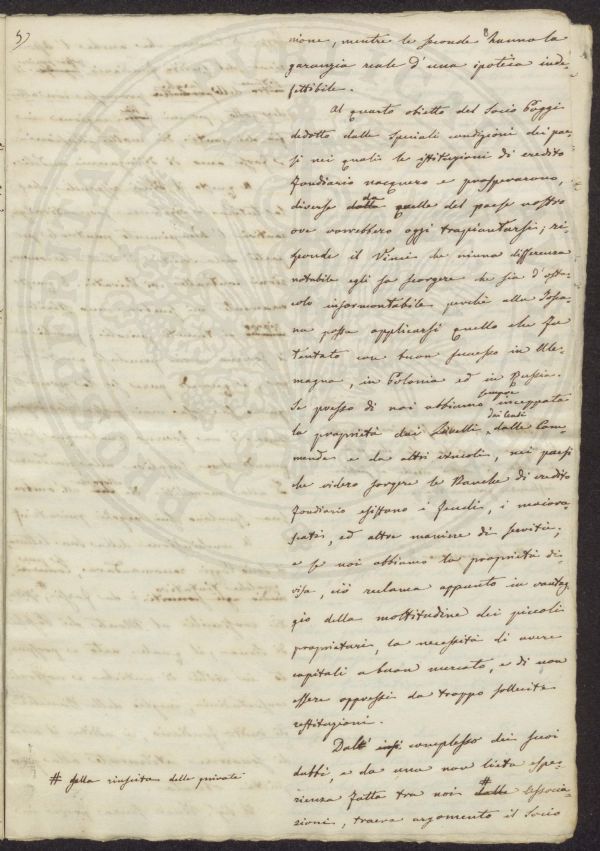 5)
nione, mentre le seconde hanno la
garanzia reale d'una ipoteca inde-
fettibile.
Al quarto obietto del Socio Poggi
dedotto dalle speciali condizioni dei pae-
si nei quali le istituzioni di credito
fondiario nacquero e prosperarono,
diverse dalle da quelle del paese nostro
ove vorrebbero oggi trapiantarsi; ri-
sponde il Vinci che niuna differenza
notabile egli sa scorgere che sia d'osta-
colo insormontabile perchè alla Tosca-
na possa applicarsi quello che fu
tentato con buon successo in Ale-
magna, in Polonia ed in Russia.
Se presso di noi abbiamo sempre inceppata
la proprietà dai Livelli, dai Censi dalle Com-
mende e da altri vincoli, nei paesi
che videro sorgere le Banche di credito
fondiario esistono i feudi, i maiora-
scati, ed altre maniere di servitù;
e se noi abbiamo la proprietà di-
visa, ciò reclama appunto in vantag-
gio della moltitudine dei piccoli
proprietari, la necessità di avere
capitali a buon mercato, e di non
essere oppressi da troppo sollecite
restituzioni.
Dal complesso dei suoi
dubbi, e da una non lieta espe-
rienza fatta tra noi # dalle associa-
zioni, traeva argomento il Socio
# sulla riuscita delle private